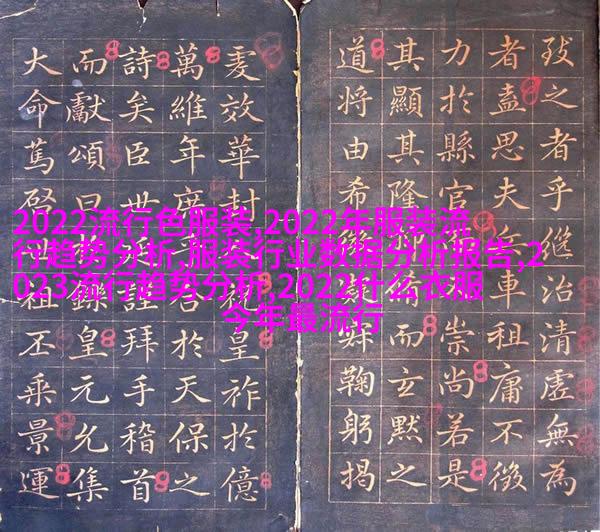 致之者乎繼治清虛無為
者盍思夫車租庸不徵
力於縣官崇尚若是
其顯其隆而玄默之
道將由希鞠躬揭
效華封皇祚於億
萬維年於天保之
詩矣臣世謹拜手稽首
而獻頌曰鑠皇元允集
大命篤啓祖丕乘景運
2022流行色服装,2022年服装流
行趋势分析,服装行业数据分析报告,2
023流行趋势分析,2022什么衣服
今年最流行